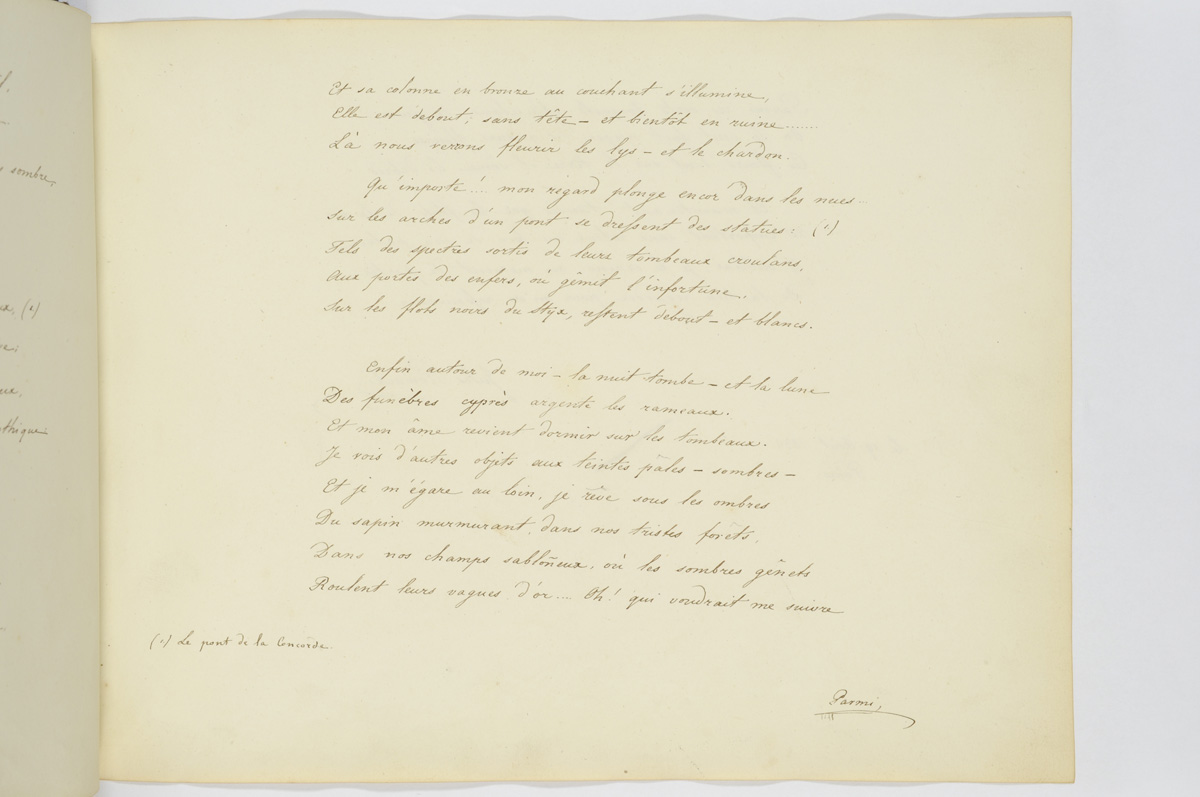 l,
sombre,
(1)
thique
Et sa colonne en bronze au couchant s'illumine,
Elle est debout; sans tête – et bientôt en ruine.......
Là nous verons fleurir les lys – et le chardon.
Qu'importe!... mon regard plonge encor dans les nues...
Sur les arches d'un pont se dressent des statues: (1)
Tels des spectres sortis de leurs tombeaux croulans,
Aux portes des enfers, où gémit l'infortune.
Sur les flots noirs du Styx, restent débout – et blancs.
Enfin autour de moi – la nuit tombe – et la lune
Des funèbres cyprès argente les rameaux.
Et mon âme revient dormir sur les tombeaux.
Je vois d'autres objets aux teintes pâles – sombres –
Et je m'égare au loin, je rêve sous les ombres
Du sapin murmurant dans nos tristes forêts.
Dans nos champs sabloneux, où les sombres gênets
Roulent leurs vagues d'or.... Oh! qui voudrait me suivre
(1) Le pont de la Concorde.
Parmi,